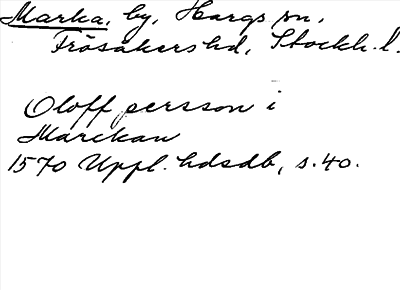 Marka, by, Hargs sn,
Frösåkers hd, Stockh. l.
Oloff persson i
Marckan
1570 Uppl. hdsdb, s. 40.